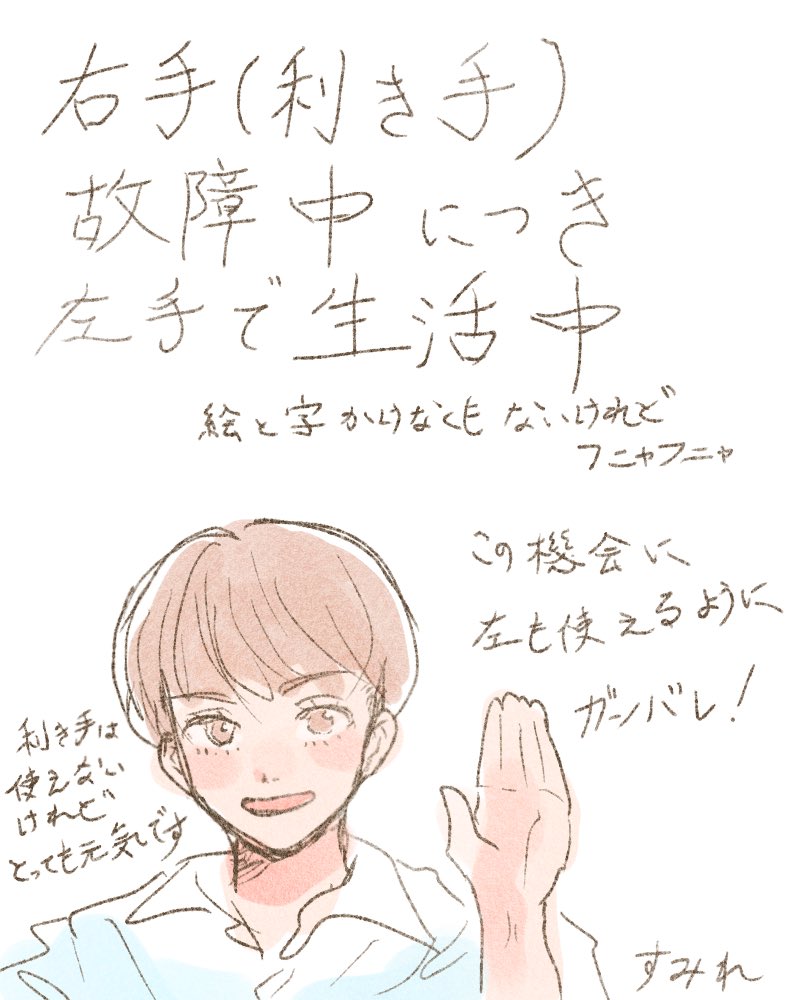 右手(利き手)
故障中につき
左手で生活中
絵と字かけなくもないけれど
フニャフニャ
この機会に
左も使えるように
ガンバレ!
利き手は
使えない
けれど
とっても元気です
すみれ